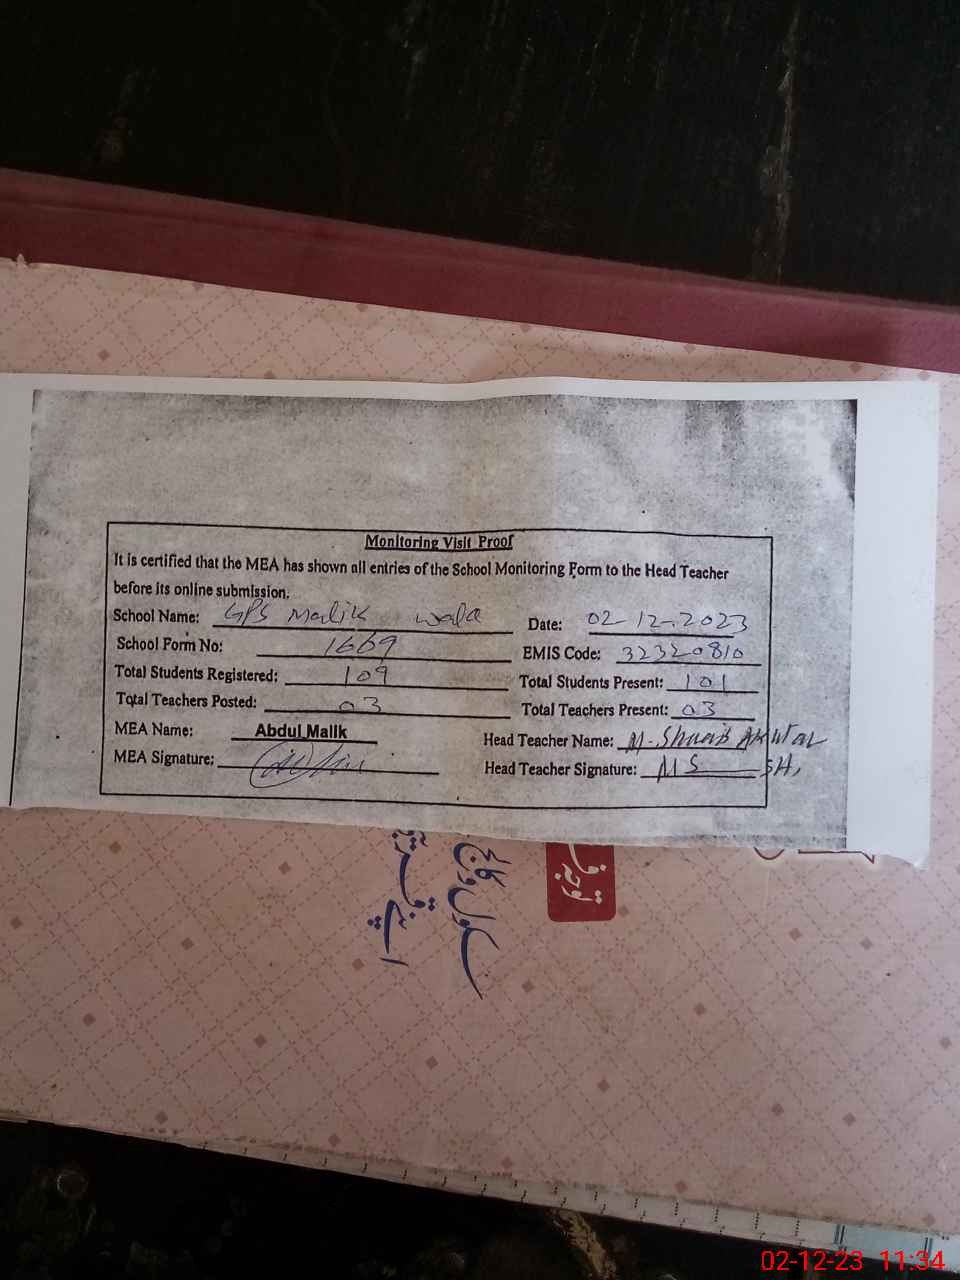 Monitoring Visit Proof
It is certified that the MEA has shown all entries of the School Monitoring Form to the Head Teacher
before its online submission.
School Name: GPS Malik wala Date: 02-12-2023
School Form No: 1669 EMIS Code: 32320810
Total Students Registered: 109 Total Students Present: 101
Total Teachers Posted: 03 Total Teachers Present: 03
MEA Name: Abdul Malik Head Teacher Name: M. Shoaib Akhtar
MEA Signature: Head Teacher Signature: MS SH,
سکول و کالج
اپنے
02-12-23 11:34